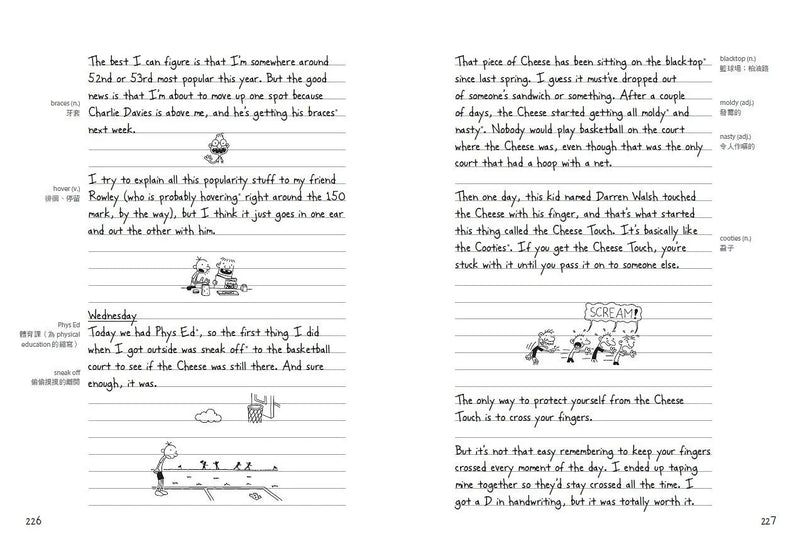 The best I can figure is that I'm somewhere around
52nd or 53rd most popular this year. But the good
news is that I'm about to move up one spot because
Charlie Davies is above me, and he's getting his braces*
next week.
braces (n.)
牙套
I try to explain all this popularity stuff to my friend
Rowley (who is probably hovering* right around the 150
mark, by the way), but I think it just goes in one ear
and out the other with him.
hover (v.)
徘徊、停留
Wednesday
Today we had Phys Ed*, so the first thing I did
when I got outside was sneak off* to the basketball
court to see if the Cheese was still there. And sure
enough, it was.
Phys Ed
體育課（為 physical
education 的縮寫）
sneak off
偷偷摸摸的離開
226
That piece of Cheese has been sitting on the blacktop*
since last spring. I guess it must've dropped out
of someone's sandwich or something. After a couple
of days, the Cheese started getting all moldy* and
nasty*. Nobody would play basketball on the court
where the Cheese was, even though that was the only
court that had a hoop with a net.
blacktop (n.)
籃球場；柏油路
moldy (adj.)
發霉的
nasty (adj.)
令人作嘔的
Then one day, this kid named Darren Walsh touched
the Cheese with his finger, and that's what started
this thing called the Cheese Touch. It's basically like
the Cooties*. If you get the Cheese Touch, you're
stuck with it until you pass it on to someone else.
cooties (n.)
蝨子
SCREAM!
The only way to protect yourself from the Cheese
Touch is to cross your fingers.
But it's not that easy remembering to keep your fingers
crossed every moment of the day. I ended up taping
mine together so they'd stay crossed all the time. I
got a D in handwriting, but it was totally worth it.
227